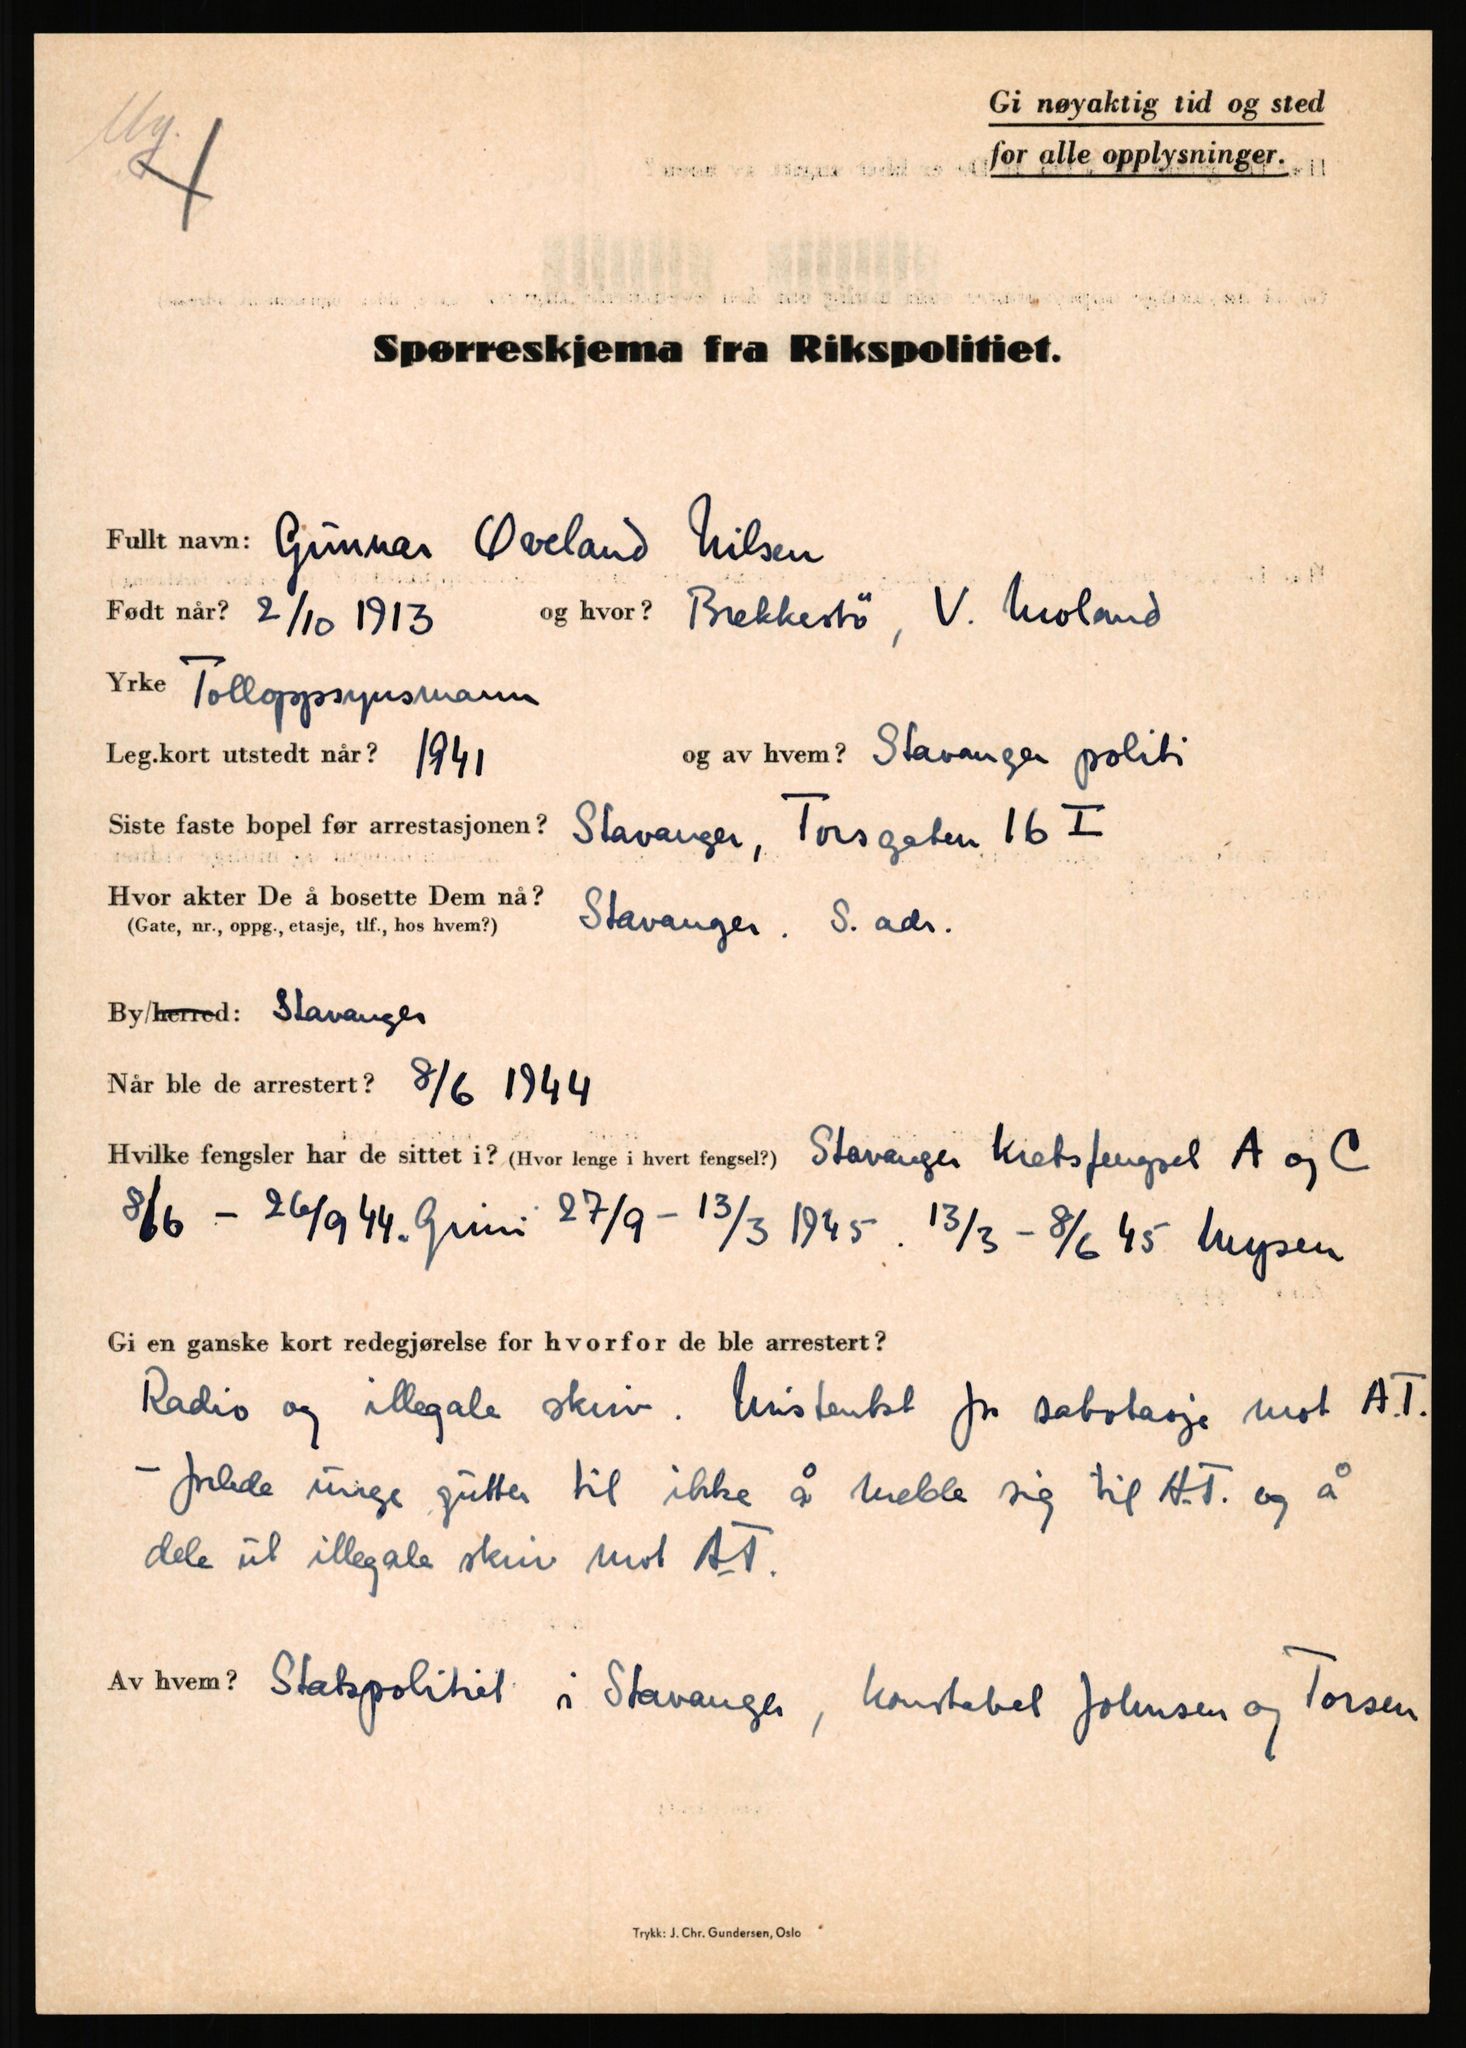 Gi nøyaktig tid og sted
for alle opplysninger.
Spørreskjema fra Rikspolitiet.
Fullt navn: Gunnar Øveland Nilsen
Født når? 2/10 1913 og hvor? Brekkestö, V. Moland
Yrke Tolloppsynsmann
Leg.kort utstedt når? 1941 og av hvem? Stavanger politi
Siste faste bopel før arrestasjonen? Stavanger, Torsgaten 16 I
Hvor akter De å bosette Dem nå? Stavanger. S. adr.
(Gate, nr., oppg., etasje, tlf., hos hvem?)
By/herred: Stavanger
Når ble de arrestert? 8/6 1944
Hvilke fengsler har de sittet i? (Hvor lenge i hvert fengsel?) Stavanger Kretsfengsel A og C
8/6 - 26/9 44. Grini 27/9 - 13/3 1945. 13/3 - 8/6 45 Mysen
Gi en ganske kort redegjørelse for hvorfor de ble arrestert?
Radio og illegale skriv. Mistenkt for sabotasje mot A.T.
- unge gutter til ikke å melde sig til A.T. og å
dele ut illegale skriv mot A.T.
Av hvem? Statspolitiet i Stavanger, konstabel Johnsen og Torsen
Trykk: J. Chr. Gundersen, Oslo